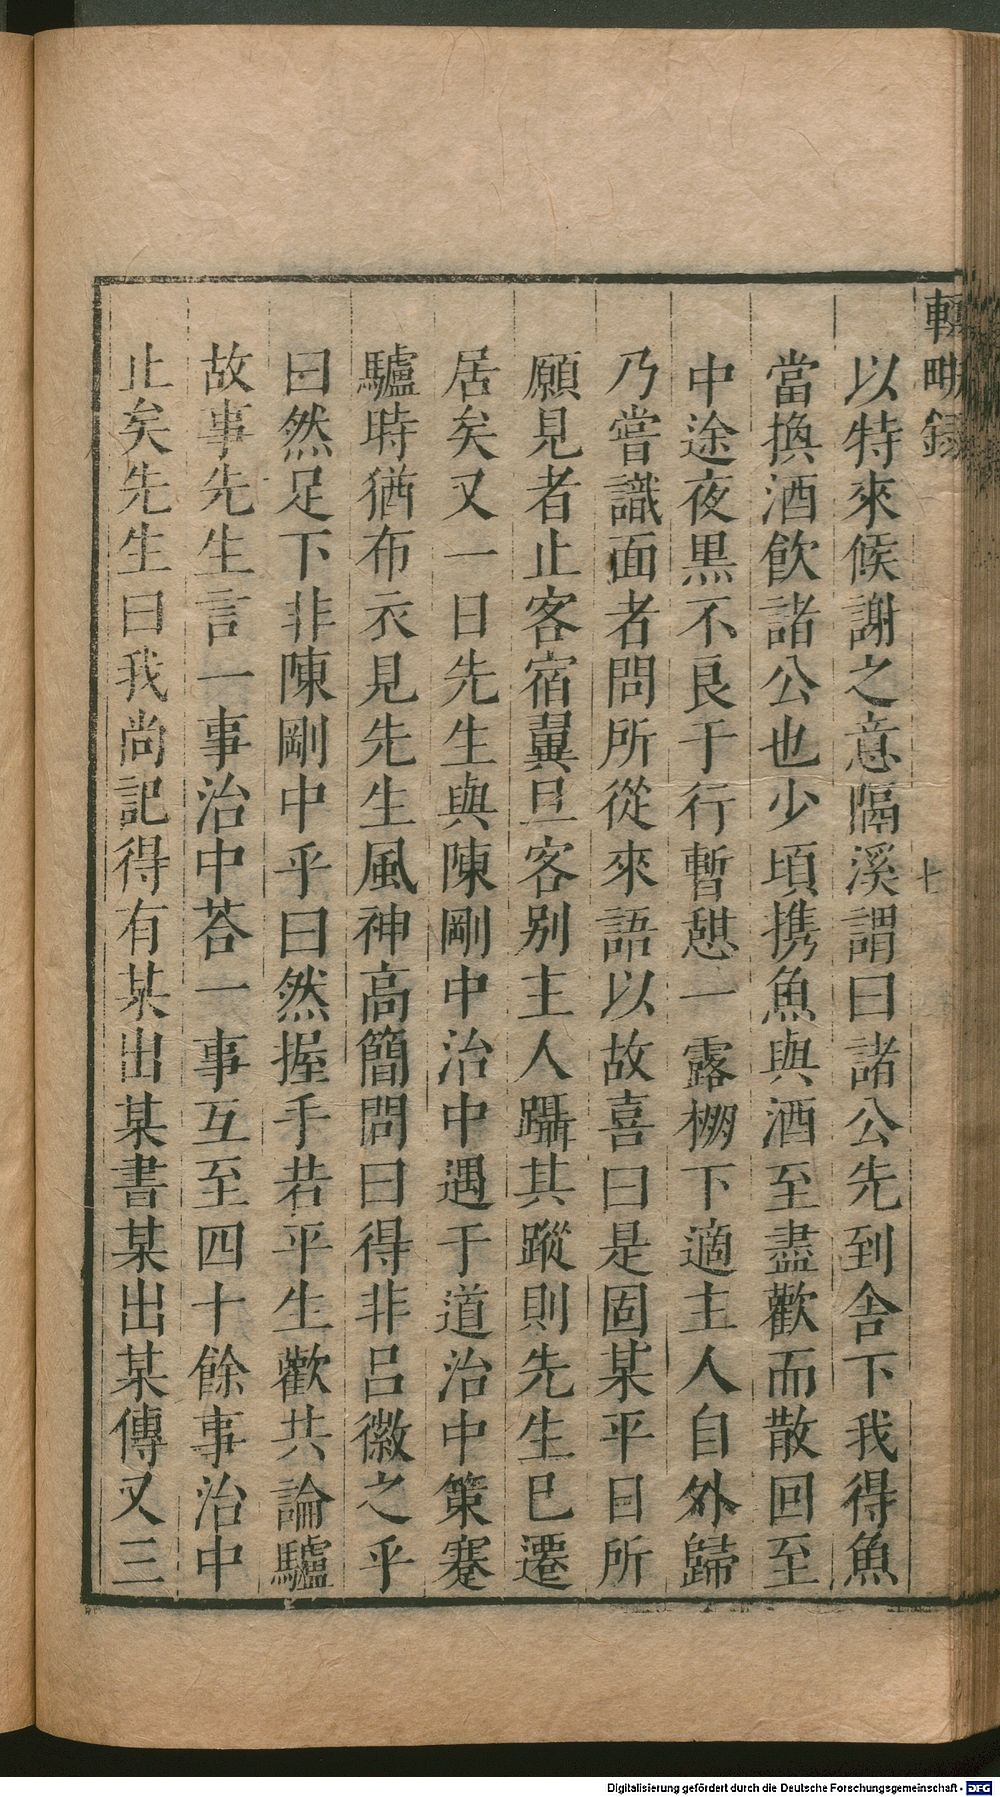 輟畊錄
七
以特來候謝之意隔溪謂曰諸公先到舍下我得魚
當換酒飲諸公也少頃携魚與酒至盡歡而散回至
中途夜黒不良于行暫憇一露棚下適主人自外歸
乃嘗識面者問所從來語以故喜曰是固某平日所
願見者止客宿翼旦客别主人躡其蹤則先生已遷
居矣又一日先生與陳剛中治中遇于道治中策蹇
驢時猶布衣見先生風神高簡問曰得非吕徽之乎
曰然足下非陳剛中乎曰然握手若平生歡共論驢
故事先生言一事治中荅一事互至四十餘事治中
止矣先生曰我尚記得有某出某書某出某傳又三
Digitalisierung gefördert durch die Deutsche Forschungsgemeinschaft - DFG